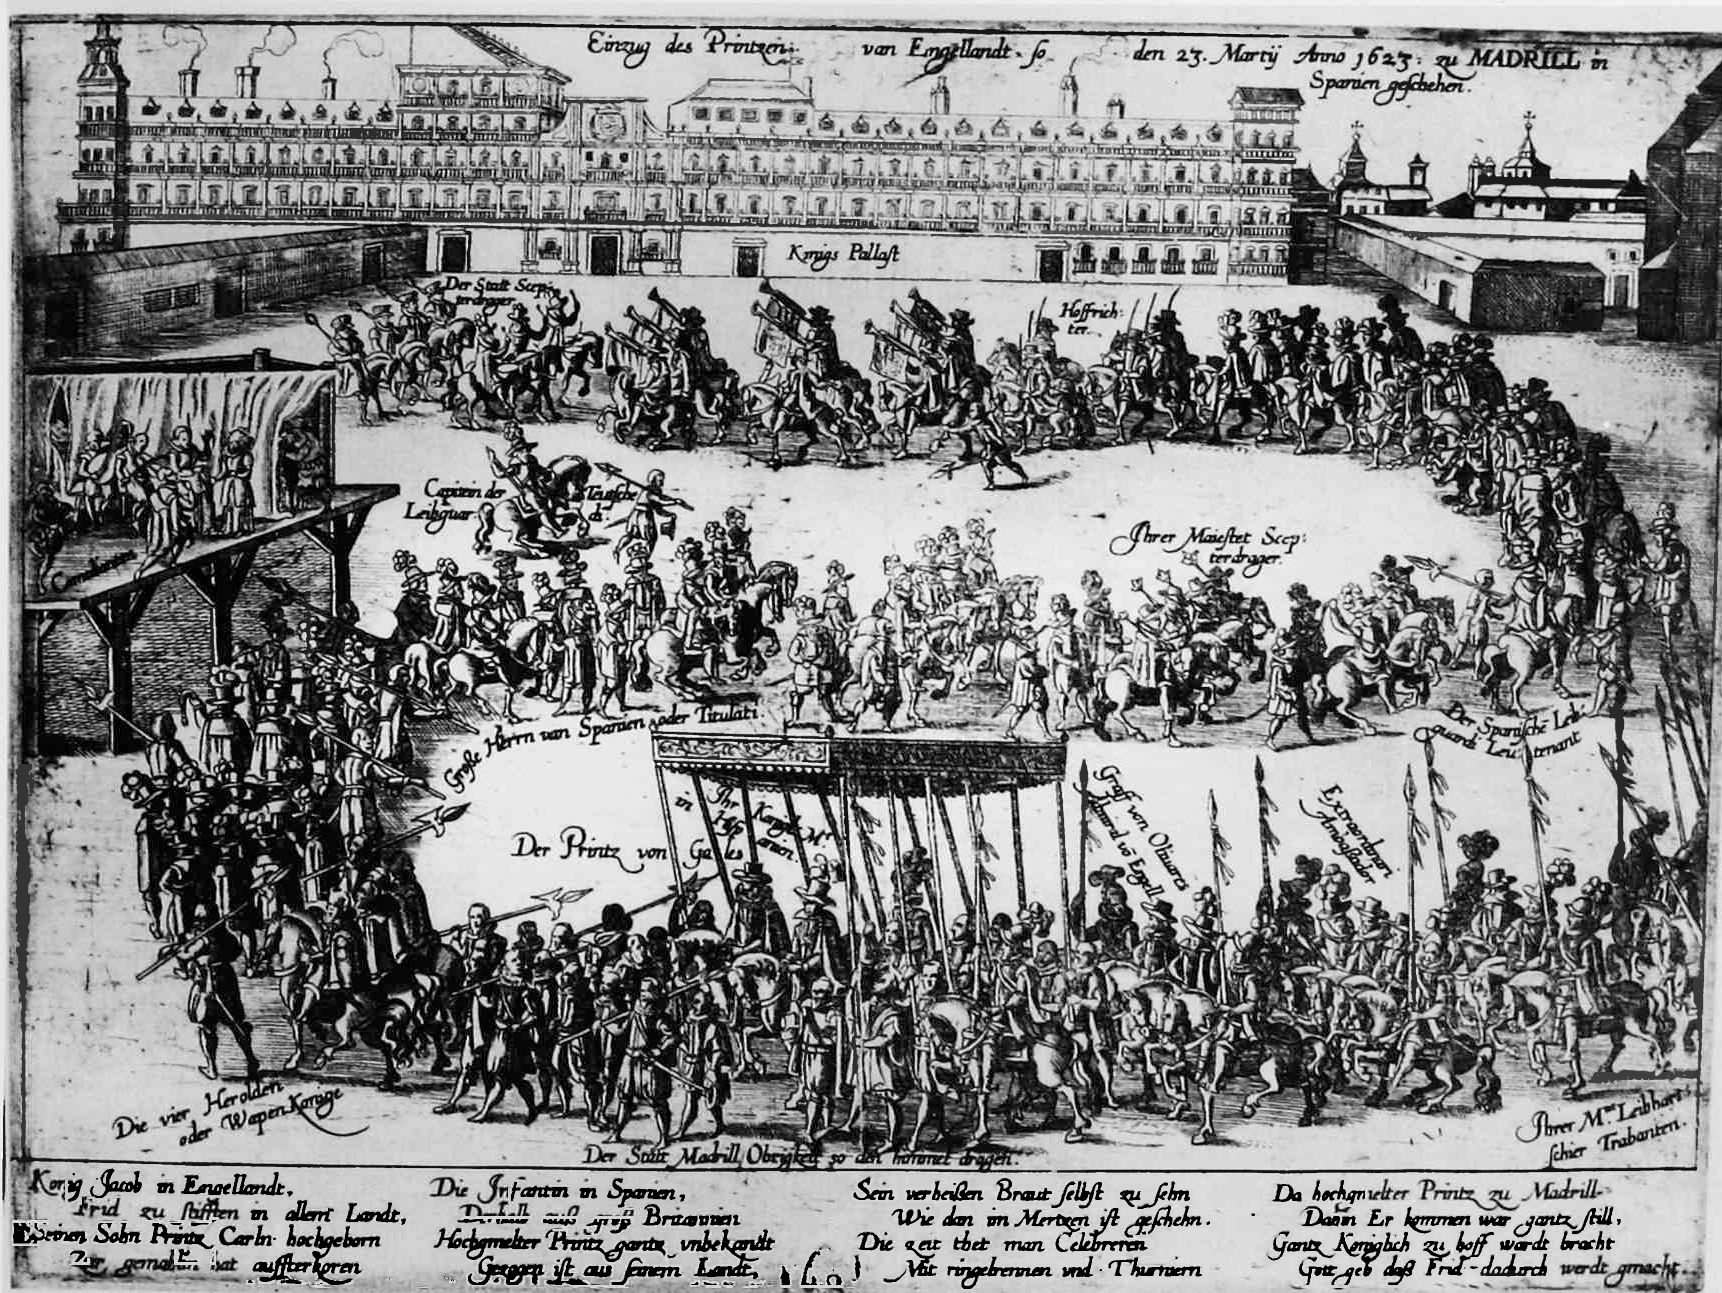 Einzug des Printzen van Engellandt so den 23. Martij Anno 1623 zu MADRILL in
Spanien geschehen.
Konigs Pallast
Der Statt Scep:
terdrager
Hoffrich:
ter.
Capitein der
Leibguar
Teutsche
Ihrer Maiestet Scep:
terdrager.
Comedianten
Große Herrn van Spanien oder Titulati.
Der Spanische Leib:
quardi Leutenant
Der Printz von Galles
Ihr Königl. Mt.
in Hispanien
Graff von Olivares
Extraordinari
Ambassador
Die vier Herolden
oder Wapen Konige
Ihrer Mtt Leibhart
schier Trabanten.
Der Statt Madrill Obrigkeit so den himmel dragen.
Konig Jacob in Engellandt,
Frid zu stifften in allem Landt,
Seinen Sohn Printz Carln hochgeborn
Zur gemahlin hat aufferkoren
Die Infantin in Spanien,
Deshalb auß groß Britannien
Hochgmelter Printz gantz unbekandt
Gezogen ist aus seinem Landt,
Sein verheißen Braut selbst zu sehn
Wie dan im Mertzen ist geschehn.
Die zeit thet man Celebreren
Mit ringebrennen und Thurniern
Da hochgmelter Printz zu Madrill
Dahin Er kommen war gantz still,
Gantz Koniglich zu hoff wardt bracht
Gott geb daß Frid dadurch werdt gmacht.